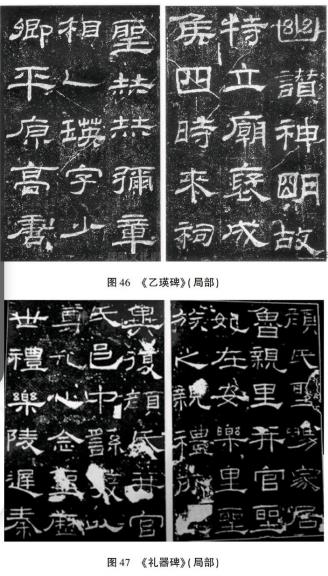 幽讚神明故
特立廟褒成
侯四時來祠
聖赫赫彌章
相乙瑛字少
卿平原高唐
图46 《乙瑛碑》(局部)
顏氏聖舅家居
魯親里并官聖
妃在安樂里聖
族之親禮所
異復顏氏并官
氏邑中繇發以
尊孔心念聖歷
世禮樂陵遲秦
图47 《礼器碑》(局部)